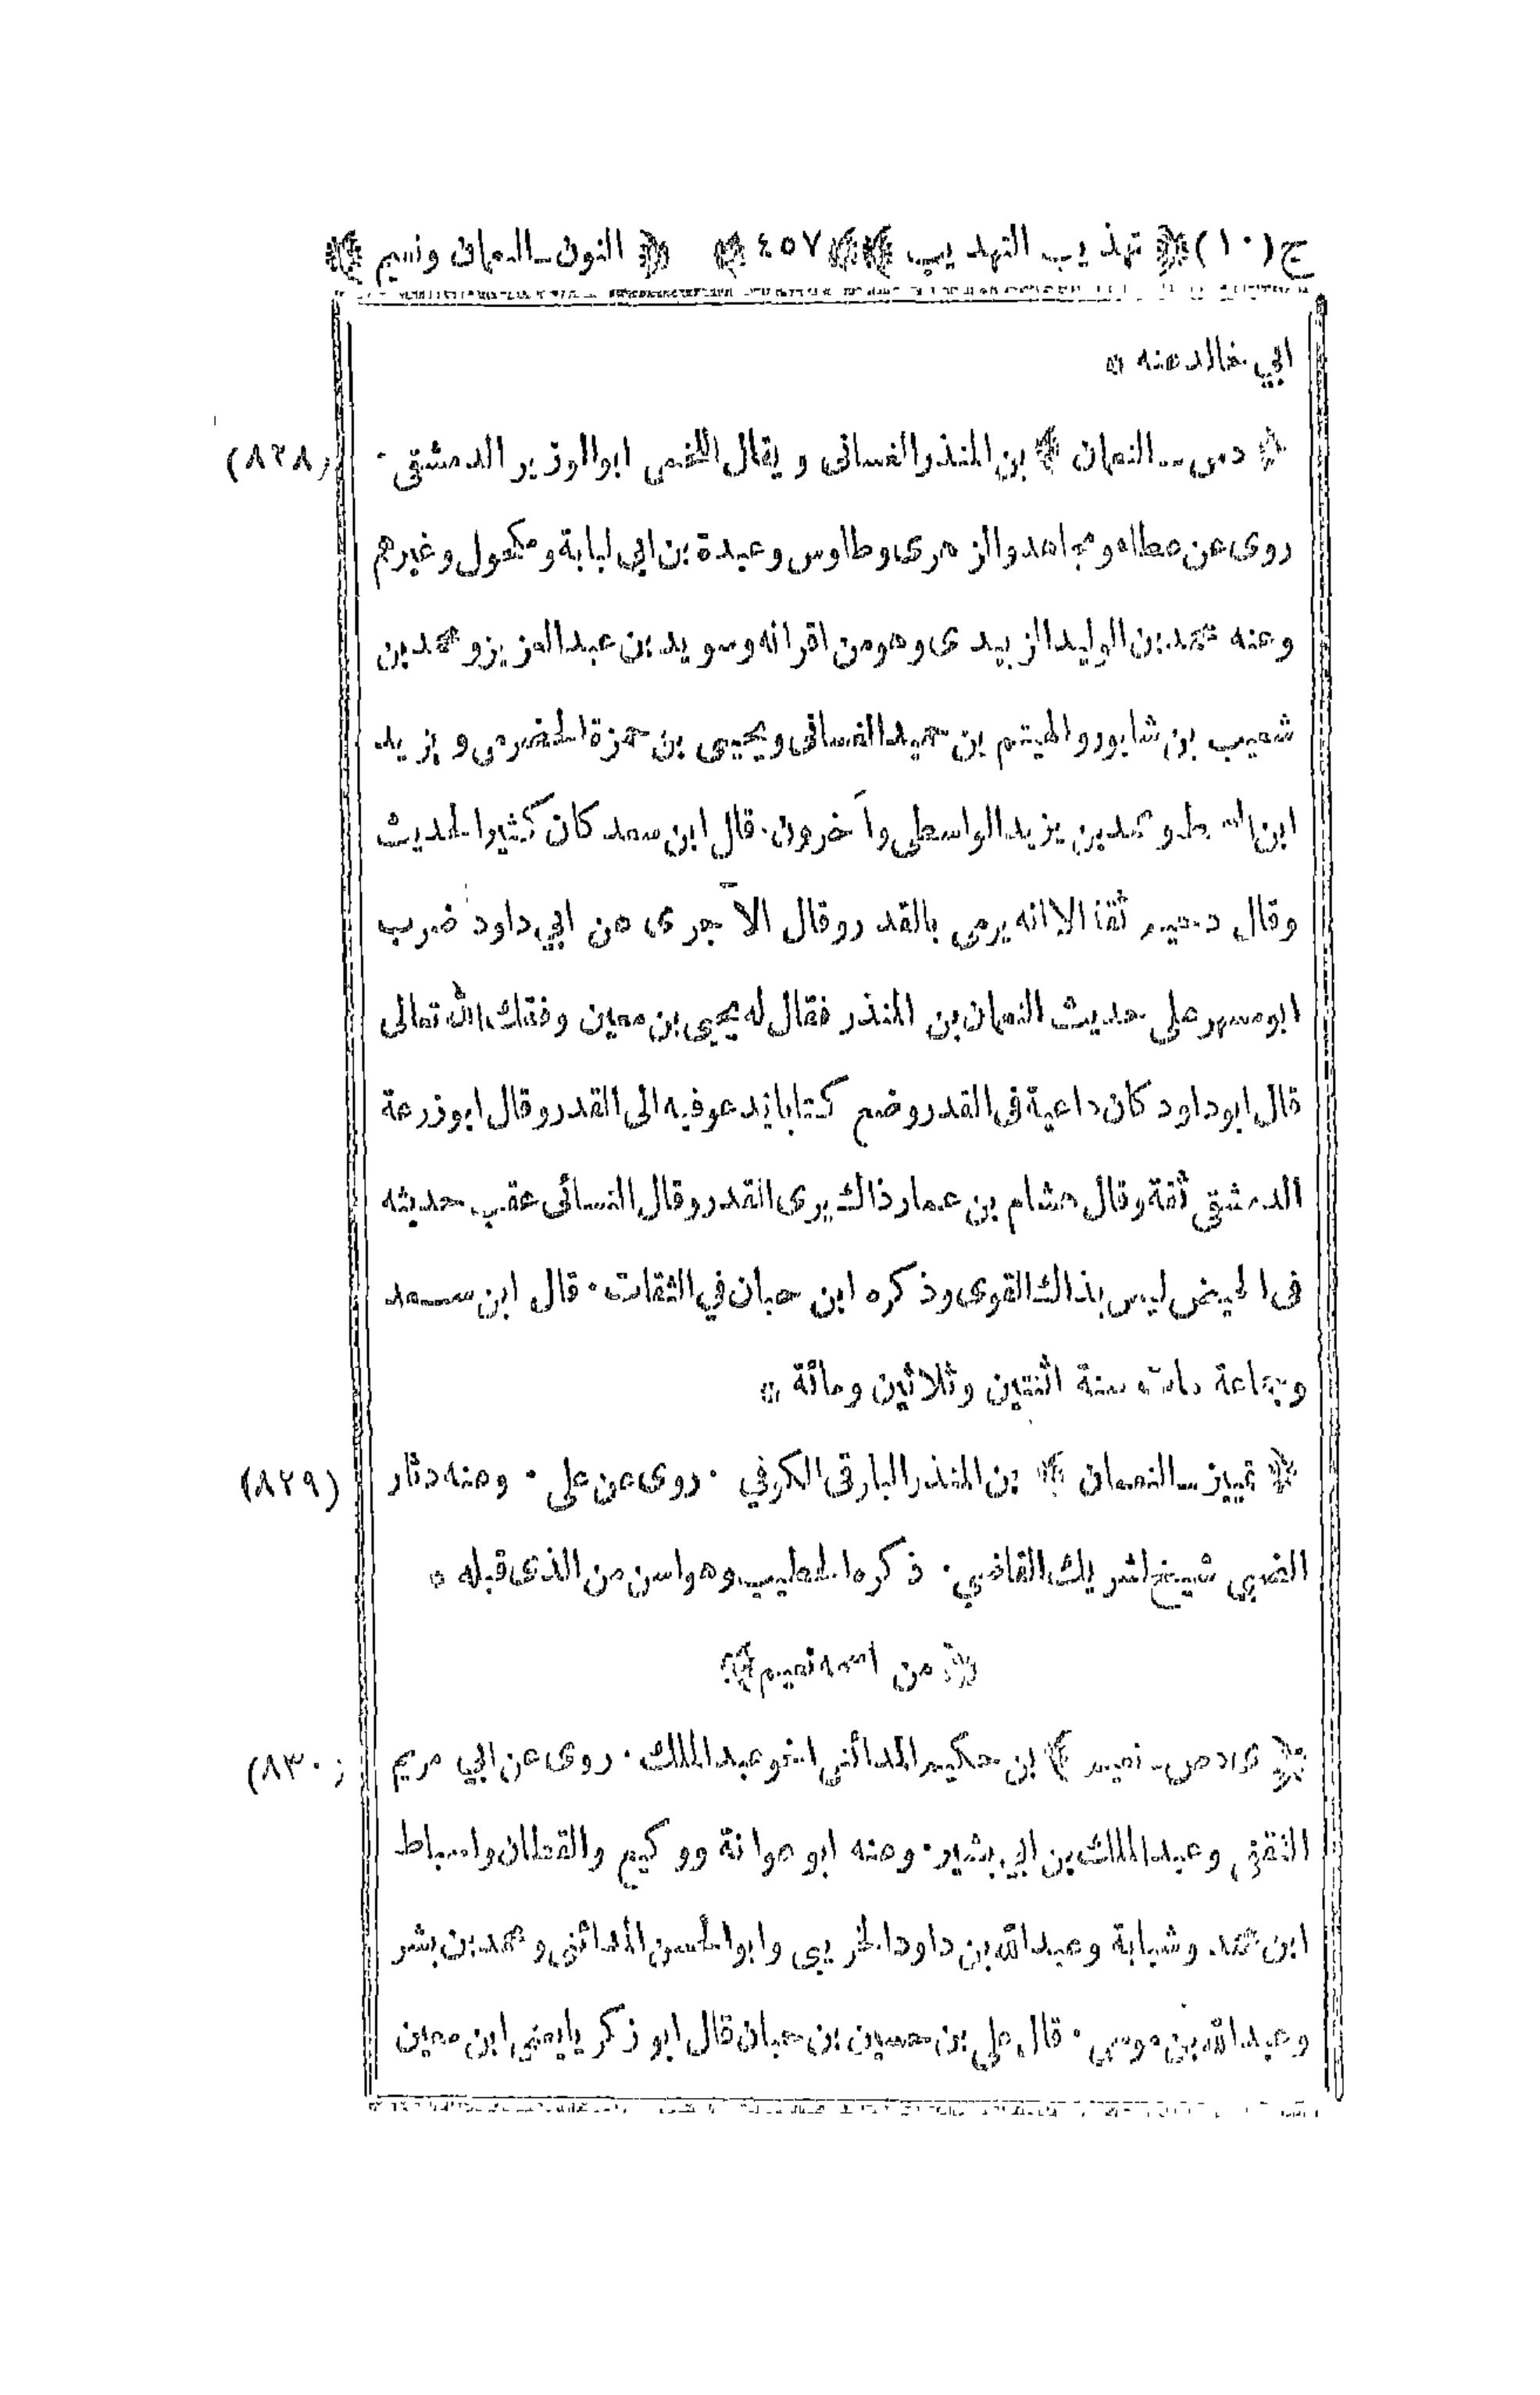 ج (١٠) ﴿ تهذيب التهذيب ﴾ ﴿ ٤٥٧ ﴾ ﴿ النون ـ النعمان ونعيم ﴾
ابي خالد عنه *
(٨٢٨) ﴿ دس ـ النعمان ﴾ بن المنذر الغسانى ويقال اللخمى ابو الوزير الدمشقى ٠
روى عن عطاء ومجاهد والزهرى وطاوس وعبدة بن ابي لبابة ومكحول وغيرهم
وعنه محمد بن الوليد الزبيدى وهو من اقرانه وسويد بن عبد العزيز ومحمد بن
شعيب بن شابور والهيثم بن حميد الغسانى ويحيى بن حمزة الحضرمى ويزيد
ابن السمط ومحمد بن يزيد الواسطى وآخرون ٠ قال ابن سعد كان كثير الحديث
وقال دحيم ثقة الا انه يرمى بالقدر وقال الآجرى عن ابي داود ضرب
ابو مسهر على حديث النعمان بن المنذر فقال له يحيى بن معين وفقك الله تعالى
قال ابو داود كان داعية فى القدر وضع كتابا يدعو فيه الى القدر وقال ابو زرعة
الدمشقى ثقة وقال هشام بن عمار ذاك يرى القدر وقال النسائى عقب حديثه
فى الحيض ليس بذاك القوى وذكره ابن حبان في الثقات ٠ قال ابن سعد
وجماعة مات سنة اثنتين وثلاثين ومائة *
(٨٢٩) ﴿ تمييز ـ النعمان ﴾ بن المنذر البارقى الكوفي ٠ روى عن على ٠ وعنه دثار
الضبى شيخ لشريك القاضي ٠ ذكره الخطيب وهو اسن من الذى قبله *
﴿ من اسمه نعيم ﴾
(٨٣٠) ﴿ ى د ص ـ نعيم ﴾ بن حكيم المدائنى اخو عبد الملك ٠ روى عن ابي مريم
الثقفى وعبد الملك بن ابي بشير ٠ وعنه ابو عوانة ووكيع والقطان واسباط
ابن محمد وشبابة وعبد الله بن داود الخريبى وابو الحسن المدائنى ومحمد بن بشر
وعبد الله بن موسى ٠ قال على بن حسين بن حبان قال ابو زكريا يعنى ابن معين